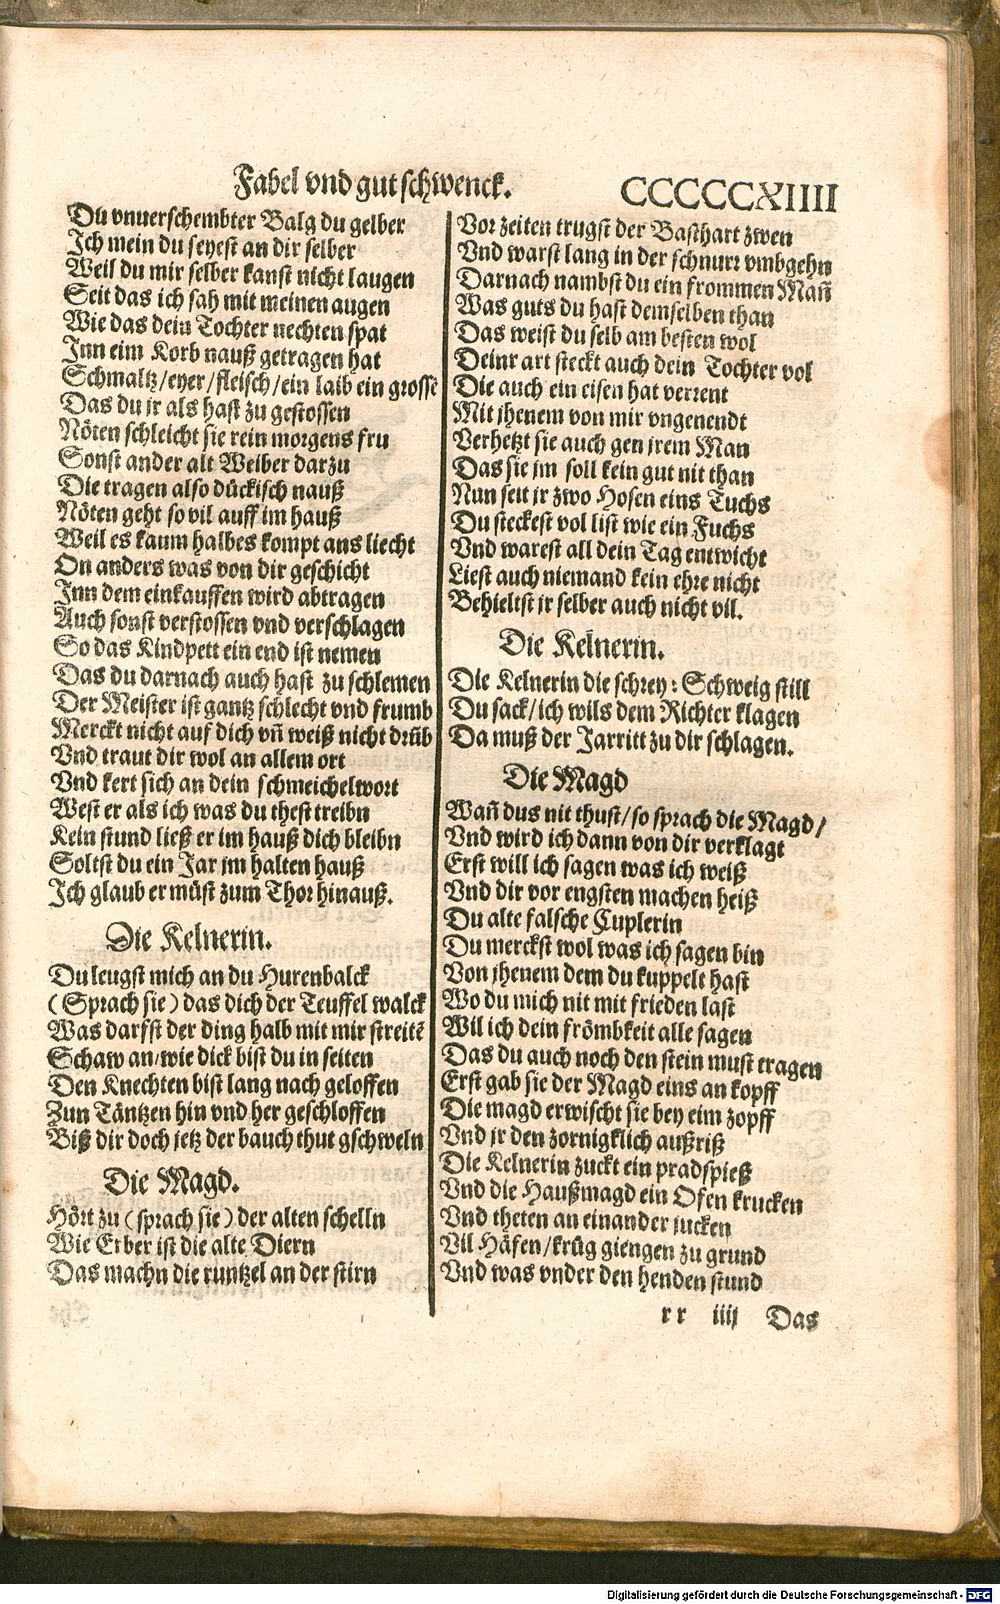 Fabel vnd gut schwenck.
CCCCCCXIIII
Du vnuerschembter Balg du gelber
Ich mein du seyest an dir selber
Weil du mir selber kanst nicht laugen
Seit das ich sah mit meinen augen
Wie das dein Tochter nechten spat
Inn eim Korb nauß getragen hat
Schmaltz/eyer/fleisch/ein laib ein grosse
Das du jr als hast zu gestossen
Nöten schleicht sie rein morgens fru
Sonst ander alt Weiber darzu
Die tragen also dückisch nauß
Nöten geht so vil auff im hauß
Weil es kaum halbes kompt ans liecht
On anders was von dir geschicht
Inn dem einkauffen wird abtragen
Auch sonst verstossen vnd verschlagen
So das Kindpett ein end ist nemen
Das du darnach auch hast zu schlemen
Der Meister ist gantz schlecht vnd frumb
Merckt nicht auf dich vñ weiß nicht drũb
Vnd traut dir wol an allem ort
Vnd kert sich an dein schmeichelwort
West er als ich was du thest treibn
Kein stund ließ er im hauß dich bleibn
Soltst du ein Jar jm halten hauß
Ich glaub er müst zum Thor hinauß.
Die Kelnerin.
Du leugst mich an du Hurenbalck
(Sprach sie) das dich der Teuffel walck
Was darfst der ding halb mit mir streitẽ
Schaw an/wie dick bist du in seiten
Den Knechten bist lang nach geloffen
Zun Täntzen hin vnd her geschloffen
Biß dir doch jetz der bauch thut gschweln
Die Magd.
Hört zu (sprach sie) der alten schelln
Wie Erber ist die alte Diern
Das machn die runtzel an der stirn
Vor zeiten trugst der Basthart zwen
Vnd warst lang in der schnurr vmbgehn
Darnach nambst du ein frommen Mañ
Was guts du hast demselben than
Das weist du selb am besten wol
Deinr art steckt auch dein Tochter vol
Die auch ein eisen hat verrent
Mit jhenem von mir vngenendt
Verhetzt sie auch gen jrem Man
Das sie jm soll kein gut nit than
Nun seit jr zwo Hosen eins Tuchs
Du steckest vol list wie ein Fuchs
Vnd warest all dein Tag entwicht
Liest auch niemand kein ehre nicht
Behieltst jr selber auch nicht vil.
Die Kelnerin.
Die Kelnerin die schrey: Schweig still
Du sack/ich wils dem Richter klagen
Da muß der Jarritt zu dir schlagen.
Die Magd
Wañ dus nit thust/so sprach die Magd/
Vnd wird ich dann von dir verklagt
Erst will ich sagen was ich weiß
Vnd dir vor engsten machen heiß
Du alte falsche Cuplerin
Du merckst wol was ich sagen bin
Von jhenem dem du kuppelt hast
Wo du mich nit mit frieden last
Wil ich dein frömbkeit alle sagen
Das du auch noch den stein must tragen
Erst gab sie der Magd eins an kopff
Die magd erwischt sie bey eim zopff
Vnd jr den zornigklich außriß
Die Kelnerin zuckt ein pradspieß
Vnd die Haußmagd ein Ofen krucken
Vnd theten an einander jucken
Vil Häfen/krüg giengen zu grund
Vnd was vnder den henden stund
rr iiij Das
Digitalisierung gefördert durch die Deutsche Forschungsgemeinschaft - DFG